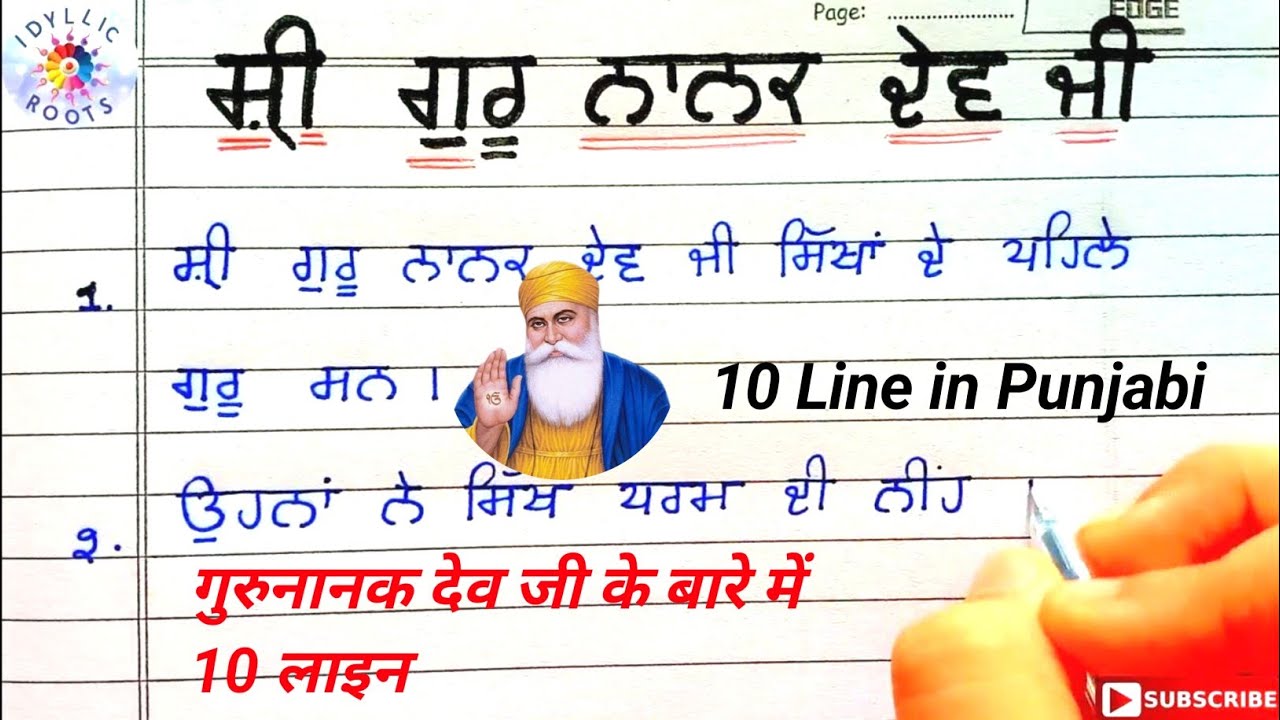 IDYLLIC ROOTS
Page: ..............................
EDGE
ਸ਼੍ਰੀ ਗੁਰੂ ਨਾਨਕ ਦੇਵ ਜੀ
1. ਸ਼੍ਰੀ ਗੁਰੂ ਨਾਨਕ ਦੇਵ ਜੀ ਸਿੱਖਾਂ ਦੇ ਪਹਿਲੇ
ਗੁਰੂ ਸਨ।
10 Line in Punjabi
੨. ਉਹਨਾਂ ਨੇ ਸਿੱਖ ਧਰਮ ਦੀ ਨੀਂਹ
गुरुनानक देव जी के बारे में
10 लाइन
SUBSCRIBE